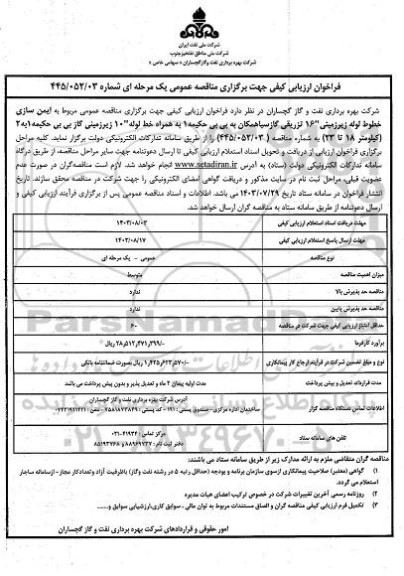 شرکت ملی نفت ایران
شرکت ملی مناطق نفتخیز جنوب
شرکت بهره برداری نفت و گاز گچساران «سهامی خاص»
فراخوان ارزیابی کیفی جهت برگزاری مناقصه عمومی یک مرحله ای شماره ۴۴۵/۰۵۲/۰۳
شرکت بهره برداری نفت و گاز گچساران در نظر دارد فراخوان ارزیابی کیفی جهت برگزاری مناقصه عمومی مربوط به ایمن سازی
خطوط لوله زیرزمینی "۱۶ تزریقی گازسیاهمکان به بی بی حکیمه۱ به همراه خط لوله "۱۰ زیرزمینی گاز بی بی حکیمه ۱به۲
(کیلومتر ۱۸ تا ۲۳) به شماره مناقصه (۴۴۵/۰۵۲/۰۳) را از طریق سامانه تدارکات الکترونیکی دولت برگزار نماید. کلیه مراحل
برگزاری فراخوان ارزیابی از دریافت و تحویل اسناد استعلام ارزیابی کیفی تا ارسال دعوتنامه جهت سایر مراحل مناقصه، از طریق درگاه
سامانه تدارکات الکترونیکی دولت (ستاد) به آدرس www.setadiran.ir انجام خواهد شد. لازم است مناقصه‌گران در صورت عدم
عضویت قبلی، مراحل ثبت نام در سایت مذکور و دریافت گواهی امضای الکترونیکی را جهت شرکت در مناقصه محقق سازند. تاریخ
انتشار فراخوان در سامانه ستاد تاریخ ۱۴۰۳/۰۷/۲۹ می باشد. اطلاعات و اسناد مناقصه عمومی پس از برگزاری فرآیند ارزیابی کیفی و
ارسال دعوتنامه از طریق سامانه ستاد به مناقصه گران ارسال خواهد شد.
مهلت دریافت اسناد استعلام ارزیابی کیفی ۱۴۰۳/۰۸/۰۳
مهلت ارسال پاسخ استعلام ارزیابی کیفی ۱۴۰۳/۰۸/۱۷
نوع مناقصه عمومی - یک مرحله ای
میزان اهمیت مناقصه متوسط
مناقصه حد پذیرش بالا ندارد
مناقصه حد پذیرش پایین ندارد
حداقل امتیاز ارزیابی کیفی جهت شرکت در مناقصه ۶۰
برآورد کارفرما ۲۸,۵۱۲,۴۷۱,۳۹۹/- ریال
نوع و مبلغ تضمین شرکت در فرآیند ارجاع کار پیمانکاری ۱,۴۲۵,۶۲۳,۵۷۰/- ریال بصورت ضمانتنامه بانکی
مدت قرارداد، تعدیل و پیش پرداخت مدت اولیه پیمان ۴ ماه و تعدیل پذیر و بدون پیش پرداخت می باشد
اطلاعات تماس دستگاه مناقصه گزار آدرس شرکت بهره برداری نفت و گاز گچساران
ساختمان اداره مرکزی - صندوق پستی : ۱۹۱ - کد پستی :
تلفن های سامانه ستاد مرکز تماس : ۴۱۹۳۴-۰۲۱
دفتر ثبت نام : ۸۸۹۶۹۷۳۷ و ۸۵۱۹۳۷۶۸
مناقصه گران متقاضی ملزم به ارائه مدارک زیر از طریق سامانه ستاد می باشند:
۱) گواهی (معتبر) صلاحیت پیمانکاری ازسوی سازمان برنامه و بودجه (حداقل رتبه ۵ در رشته نفت وگاز) باظرفیت آزاد وتعدادکار مجاز - ازسامانه ساجار
استعلام می گردد.
۲) روزنامه رسمی آخرین تغییرات شرکت در خصوص ترکیب اعضای هیات مدیره
۳) تکمیل فرم ارزیابی کیفی مناقصه گران و الصاق مستندات مربوط به توان مالی - سوابق کاری،ارزشیابی سوابق و.....
امور حقوقی و قراردادهای شرکت بهره برداری نفت و گاز گچساران
۰۲۱-۸۸۳۴۹۶۷۰-۵